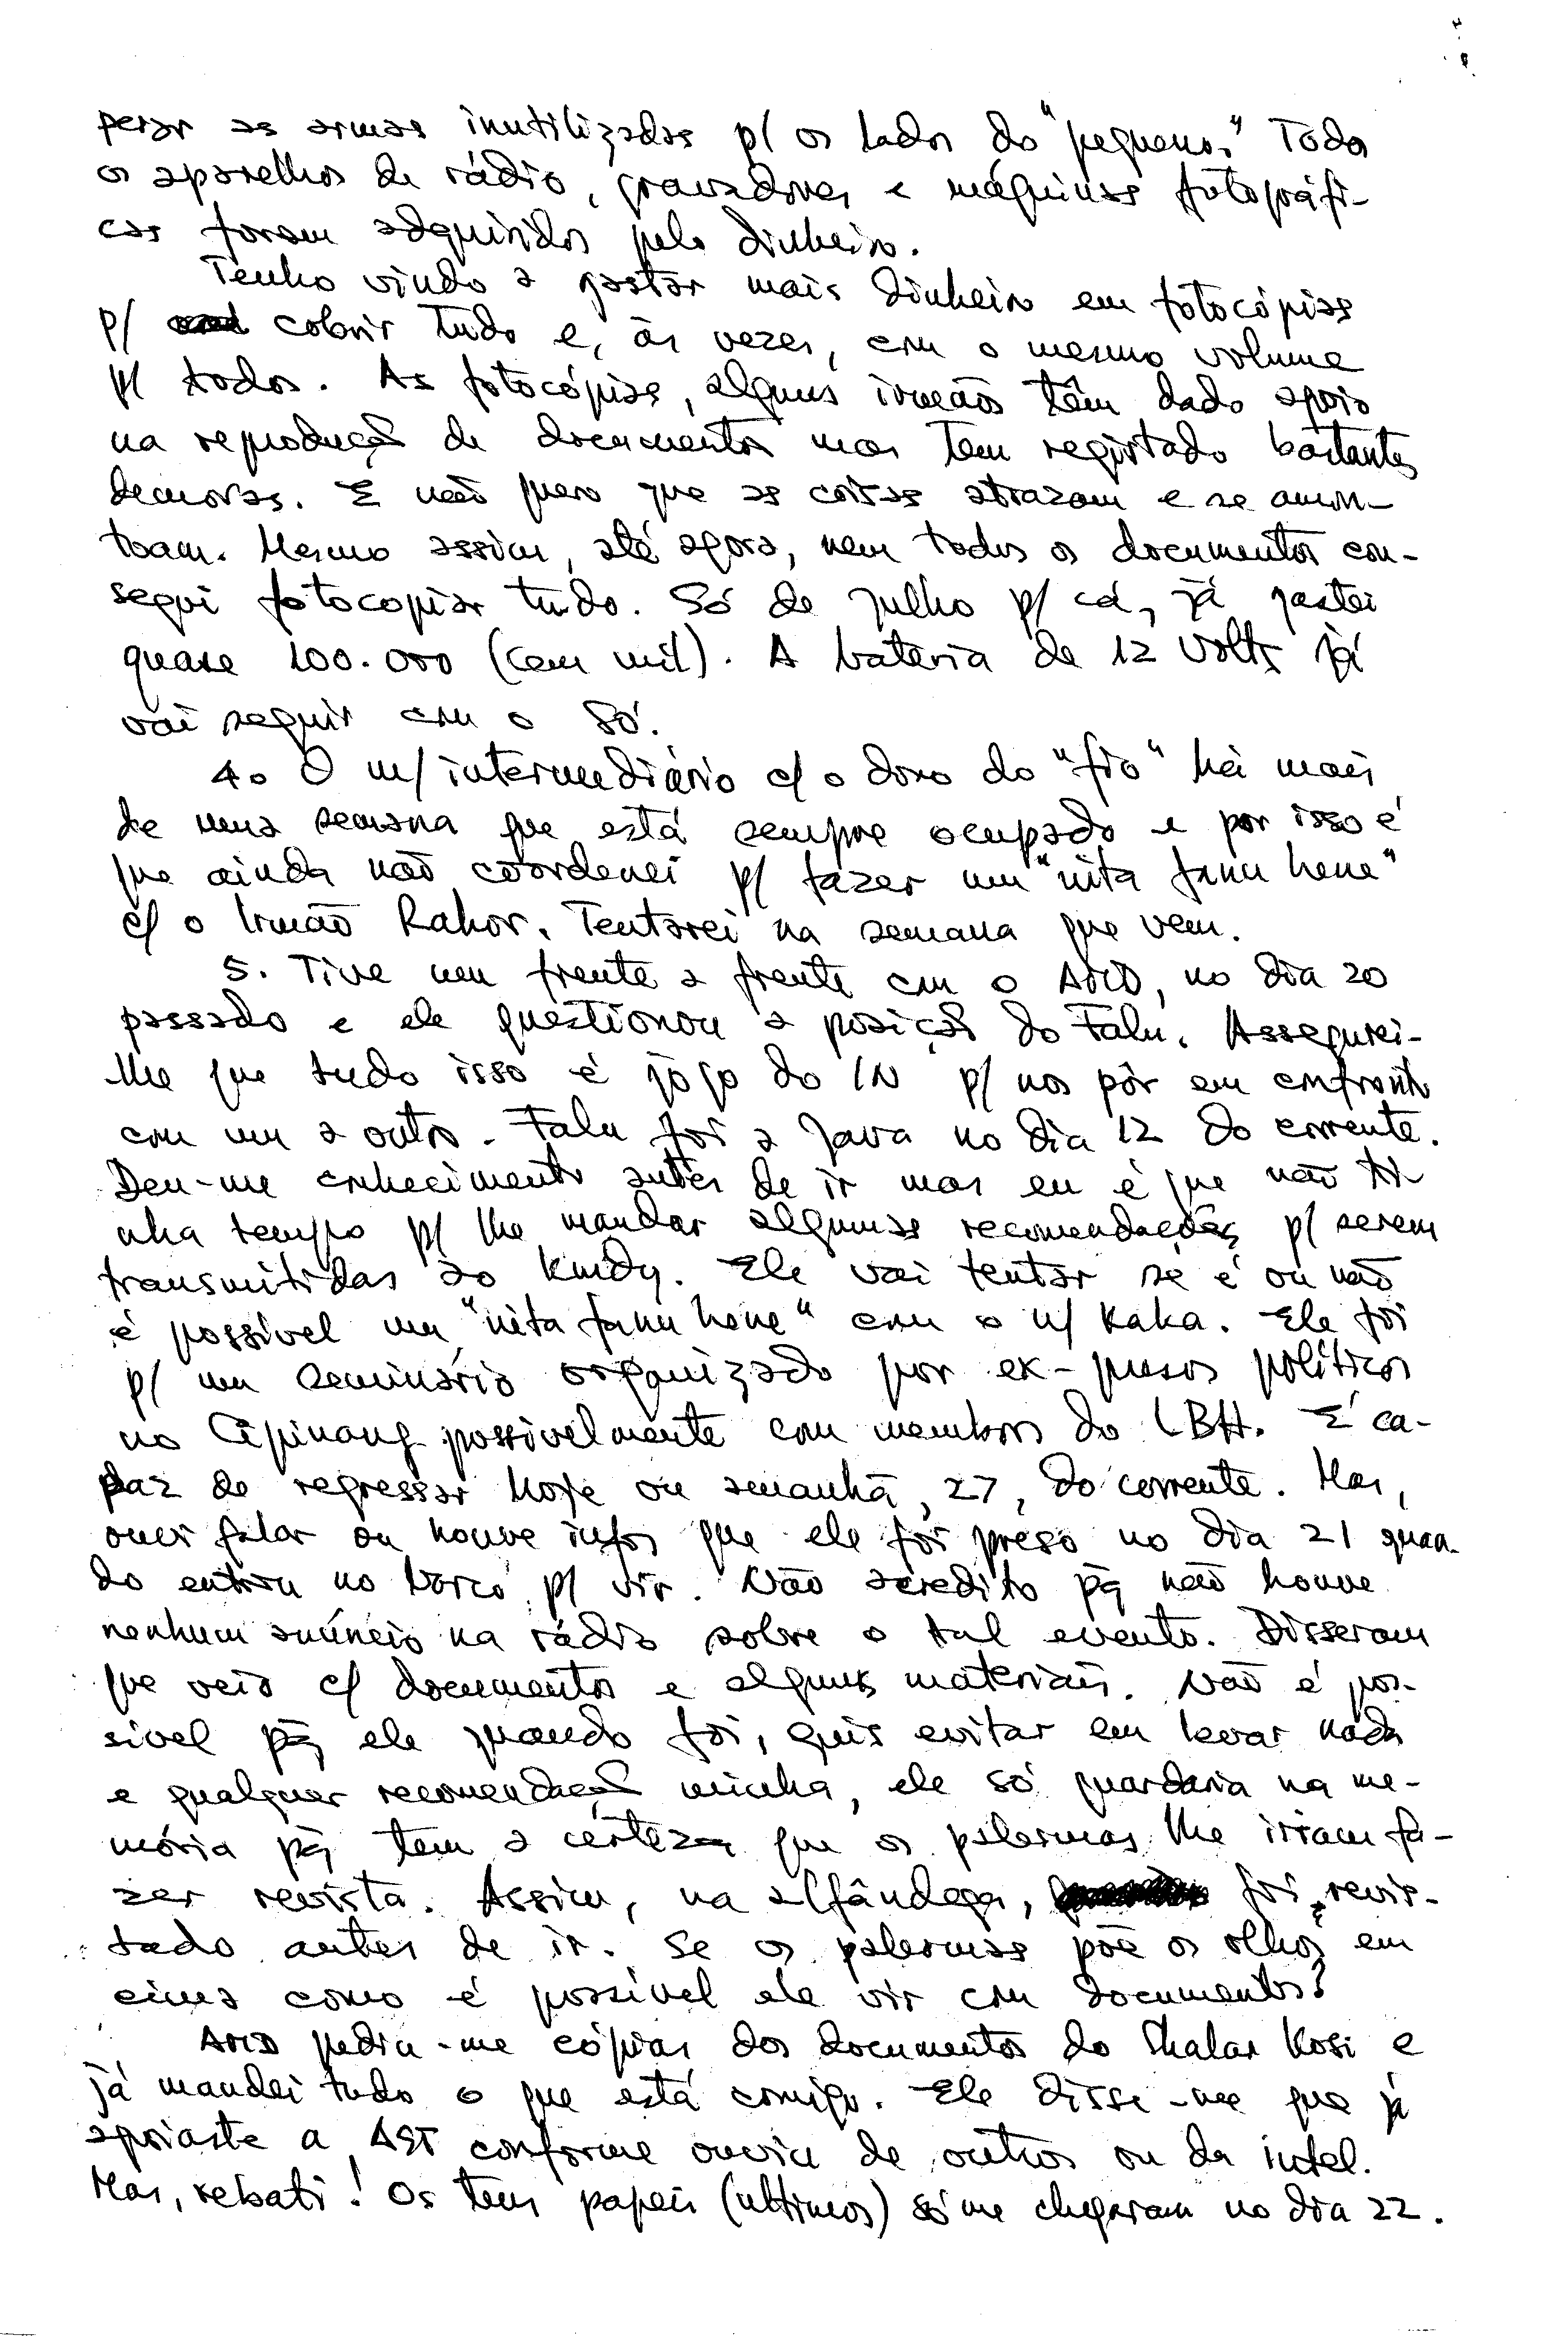 perar as armas inutilizadas p/ os lados do "pequeno." Todos
os aparelhos de rádio, gravadores e máquinas fotográfi-
cas foram adquiridos pelo dinheiro.
Tenho vindo a gastar mais dinheiro em fotocópias
p/ cobrir tudo e, às vezes, com o mesmo volume
p/ todos. As fotocópias, alguns irmãos têm dado apoio
na reprodução de documentos mas tem registado bastantes
demoras. E não quero que as coisas atrazam e se amon-
toam. Mesmo assim, até agora, nem todos os documentos con-
segui fotocopiar tudo. Só de Julho p/ cá, já gastei
quase 100.000 (cem mil). A bateria de 12 Volts já
vai seguir com o Só.
4. O m/ intermediário c/ o dono do "fio" há mais
de uma semana que está sempre ocupado e por isso é
que ainda não coordenei p/ fazer um "nita fanu hene"
c/ o Irmão Rahor. Tentarei na semana que vem.
5. Tive um frente a frente com o AMD, no dia 20
passado e ele questionou a posição do Falu. Assegurei-
lhe que tudo isso é jogo do IN p/ nos pôr em confronto
com um a outro. Falu foi a Java no dia 12 do corrente.
Deu-me conhecimento antes de ir mas eu é que não ti-
nha tempo p/ lhe mandar algumas recomendações p/ serem
transmitidas ao Kmdy. Ele vai tentar se é ou não
é possível um "nita fanu hene" com o n/ Kaka. Ele foi
p/ um seminário organizado por ex-presos políticos
no Cipinang possivelmente com membros do LBH. É ca-
paz de regressar hoje ou amanhã, 27, do corrente. Mas,
ouvi falar ou houve infos que ele foi preso no dia 21 quan-
do entrou no barco p/ vir. Não acredito pq não houve
nenhum anúncio na rádio sobre o tal evento. Disseram
que veio c/ documentos e alguns materiais. Não é pos-
sível pq ele quando foi, quis evitar em levar nada
e qualquer recomendação minha, ele só guardaria na me-
mória pq tem a certeza que os palermas lhe iriam fa-
zer revista. Assim, na alfândega, foi revis-
tado antes de ir. Se os palermas põe os olhos em
cima como é possível ele vir com documentos?
AMD pediu-me cópias dos documentos do Shalar Kosi e
já mandei tudo o que está comigo. Ele disse-me que já
apoiaste a AST conforme ouviu de outros ou da intel.
Mas, rebati! Os teus papeis (ultimos) só me chegaram no dia 22.